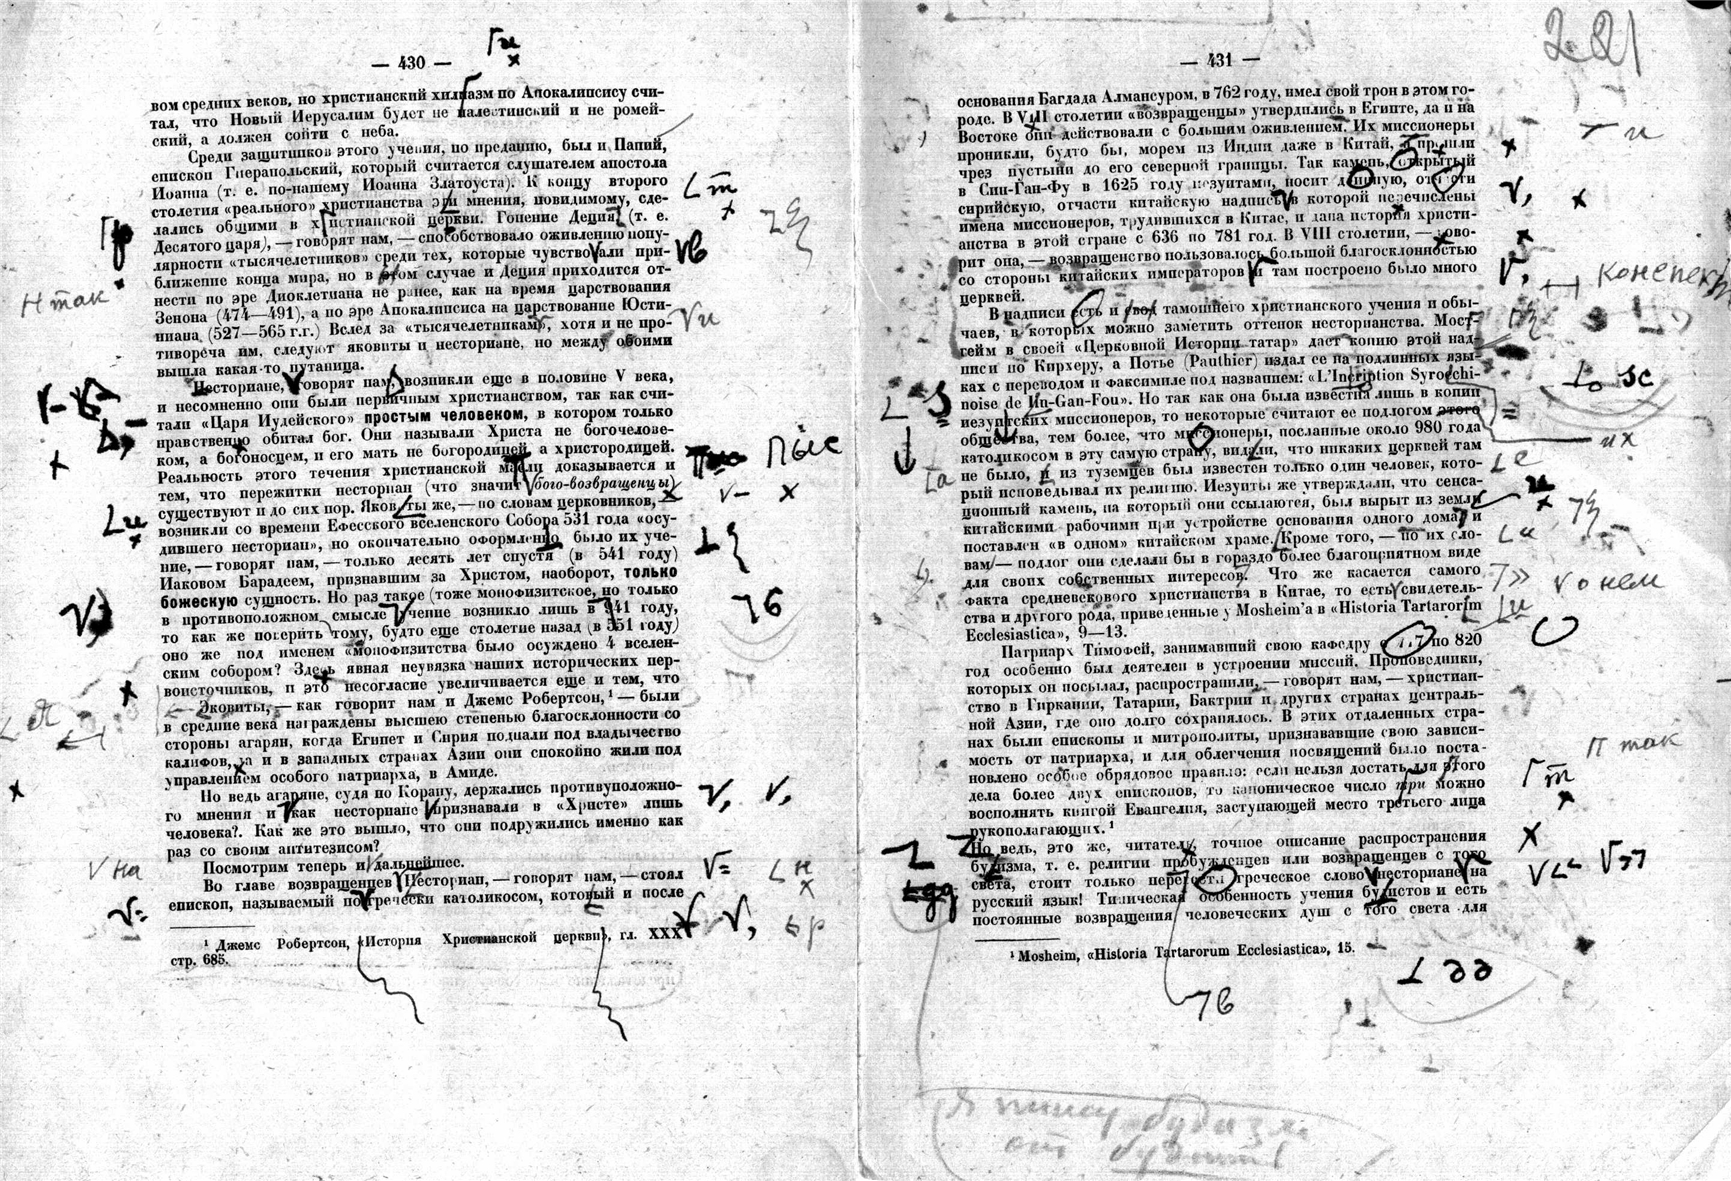 — 430 —
вом средних веков, но христианский хилиазм по Апокалипсису счи-
тал, что Новый Иерусалим будет не палестинский и не ромей-
ский, а должен сойти с неба.
Среди защитников этого учения, по преданию, был и Папий,
епископ Гиерапольский, который считается слушателем апостола
Иоанна (т. е. по-нашему Иоанна Златоуста). К концу второго
столетия «реального» христианства эти мнения, повидимому, сде-
лались общими в христианской церкви. Гонение Деция (т. е.
Десятого царя), — говорят нам, — способствовало оживлению попу-
лярности «тысячелетников» среди тех, которые чувствовали при-
ближение конца мира, но в этом случае и Деция приходится от-
нести по эре Диоклетиана не ранее, как на время царствования
Зенона (474—491), а по эре Апокалипсиса на царствование Юсти-
ниана (527—565 г.г.) Вслед за «тысячелетникам», хотя и не про-
тивореча им, следуют яковиты и несториане, но между обоими
вышла какая-то путаница.
Несториане, говорят нам, возникли еще в половине V века,
и несомненно они были первичным христианством, так как счи-
тали «Царя Иудейского» простым человеком, в котором только
нравственно обитал бог. Они называли Христа не богочелове-
ком, а богоносцем, и его мать не богородицей, а христородицей.
Реальность этого течения христианской мысли доказывается и
тем, что пережитки несториан (что значит бого-возвращенцы)
существуют и до сих пор. Яковиты же, — по словам церковников,
возникли со времени Ефесского вселенского Собора 531 года «осу-
дившего несториан», но окончательно оформлено было их уче-
ние, — говорят нам, — только десять лет спустя (в 541 году)
Иаковом Барадеем, признавшим за Христом, наоборот, только
божескую сущность. Но раз такое (тоже монофизитское, но только
в противоположном смысле учение возникло лишь в 541 году,
то как же поверить тому, будто еще столетие назад (в 351 году)
оно же под именем «монофизитства было осуждено 4 вселен-
ским собором? Здесь явная неувязка наших исторических пер-
воисточников, и это несогласие увеличивается еще и тем, что
Яковиты, — как говорит нам и Джемс Робертсон,¹ — были
в средние века награждены высшею степенью благосклонности со
стороны агарян, когда Египет и Сирия подпали под владычество
калифов, да и в западных странах Азии они спокойно жили под
управлением особого патриарха, в Амиде.
Но ведь агаряне, судя по Корану, держались противуположно-
го мнения и как несториане признавали в «Христе» лишь
человека?. Как же это вышло, что они подружились именно как
раз со своим антитезисом?
Посмотрим теперь и дальнейшее.
Во главе возвращенцев Несториан, — говорят нам, — стоял
епископ, называемый по гречески католикосом, который и после
¹ Джемс Робертсон, «История Христианской церкви», гл. XXX
стр. 685.
Н так
V на
пыс
7б
— 431 —
основания Багдада Алмансуром, в 762 году, имел свой трон в этом го-
роде. В VIII столетии «возвращенцы» утвердились в Египте, да и на
Востоке они действовали с большим оживлением. Их миссионеры
проникли, будто бы, морем из Индии даже в Китай, и прошли
чрез пустыни до его северной границы. Так камень, открытый
в Син-Ган-Фу в 1625 году иезуитами, носит длинную, отчасти
сирийскую, отчасти китайскую надпись в которой перечислены
имена миссионеров, трудившихся в Китае, и дана история христи-
анства в этой стране с 636 по 781 год. В VIII столетии, — гово-
рит она, — возвращенство пользовалось большой благосклонностью
со стороны китайских императоров и там построено было много
церквей.
В надписи есть и свод тамошнего христианского учения и обы-
чаев, в которых можно заметить оттенок несторианства. Мост-
гейм в своей «Церковной Истории татар» даст копию этой над-
писи по Кирхеру, а Потье (Pauthier) издал ее на подлинных язы-
ках с переводом и факсимиле под названием: «L'Incription Syrocchi-
noise de Iln-Gan-Fou». Но так как она была известна лишь в копии
иезуитских миссионеров, то некоторые считают ее подлогом этого
общества, тем более, что миссионеры, посланные около 980 года
католикосом в эту самую страну, видали, что никаких церквей там
не было, и из туземцев был известен только один человек, кото-
рый исповедывал их религию. Иезуиты же утверждали, что сенса-
ционный камень, на который они ссылаются, был вырыт из земли
китайскими рабочими при устройстве основания одного дома, и
поставлен «в одном» китайском храме. Кроме того, — по их сло-
вам/— подлог они сделали бы в гораздо более благоприятном виде
для своих собственных интересов. Что же касается самого
факта средневекового христианства в Китае, то есть свидетель-
ства и другого рода, приведенные у Mosheim'а в «Historia Tartarorim
Ecclesiastica», 9—13.
Патриарх Тимофей, занимавший свою кафедру с по 820
год особенно был деятелен в устроении миссий. Проповедники,
которых он посылал, распространили, — говорят нам, — христиан-
ство в Гиркании, Татарии, Бактрии и других странах централь-
ной Азии, где оно долго сохранялось. В этих отдаленных стра-
нах были епископы и митрополиты, признававшие свою зависи-
мость от патриарха, и для облегчения посвящений было поста-
новлено особое обрядовое правило: если нельзя достать для этого
дела более двух епископов, то каноническое число три можно
восполнять книгой Евангелия, заступающей место третьего лица
рукополагающих.¹
Но ведь, это же, читатель, точное описание распространения
будизма, т. е. религии пробужденцев или возвращенцев с того
света, стоит только перевести греческое слово несториане на
русский язык! Типическая особенность учения будистов и есть
постоянные возвращения человеческих душ с того света для
¹ Mosheim, «Historia Tartarorum Ecclesiastica», 15.
V о нем
П так
7в
Я пишу будизм
от будить